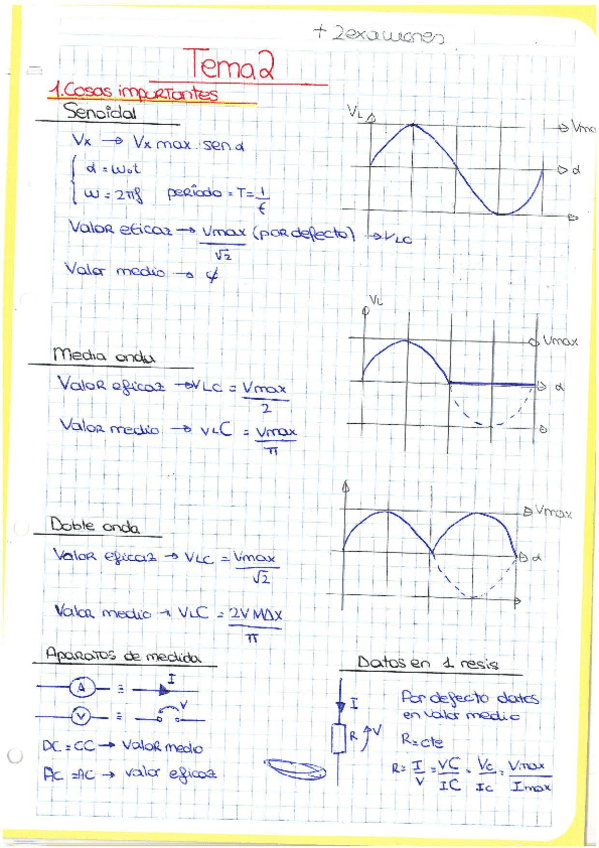 + 2exámenes
Tema 2
1. Cosas importantes
Senoidal
Vx → Vx max. sen α
α = ω₀t
ω = 2πf período = T = 1/f
Valor eficaz → Vmax/√2 (por defecto) → VLC
Valor medio → ∅
VL
Vmax
α
Media onda
Valor eficaz → VLC = Vmax/2
Valor medio → VLC = Vmax/π
VL
Vmax
α
Doble onda
Valor eficaz → VLC = Vmax/√2
Valor medio → VLC = 2VMAX/π
Vmax
α
Aparatos de medida
A ≡ I
V ≡ V
DC = CC → Valor medio
AC = AC → valor eficaz
Datos en 1 resis
I
R V
Por defecto datos
en valor medio
R = cte
R = I/V = VC/IC = Vc/Ic = Vmax/Imax